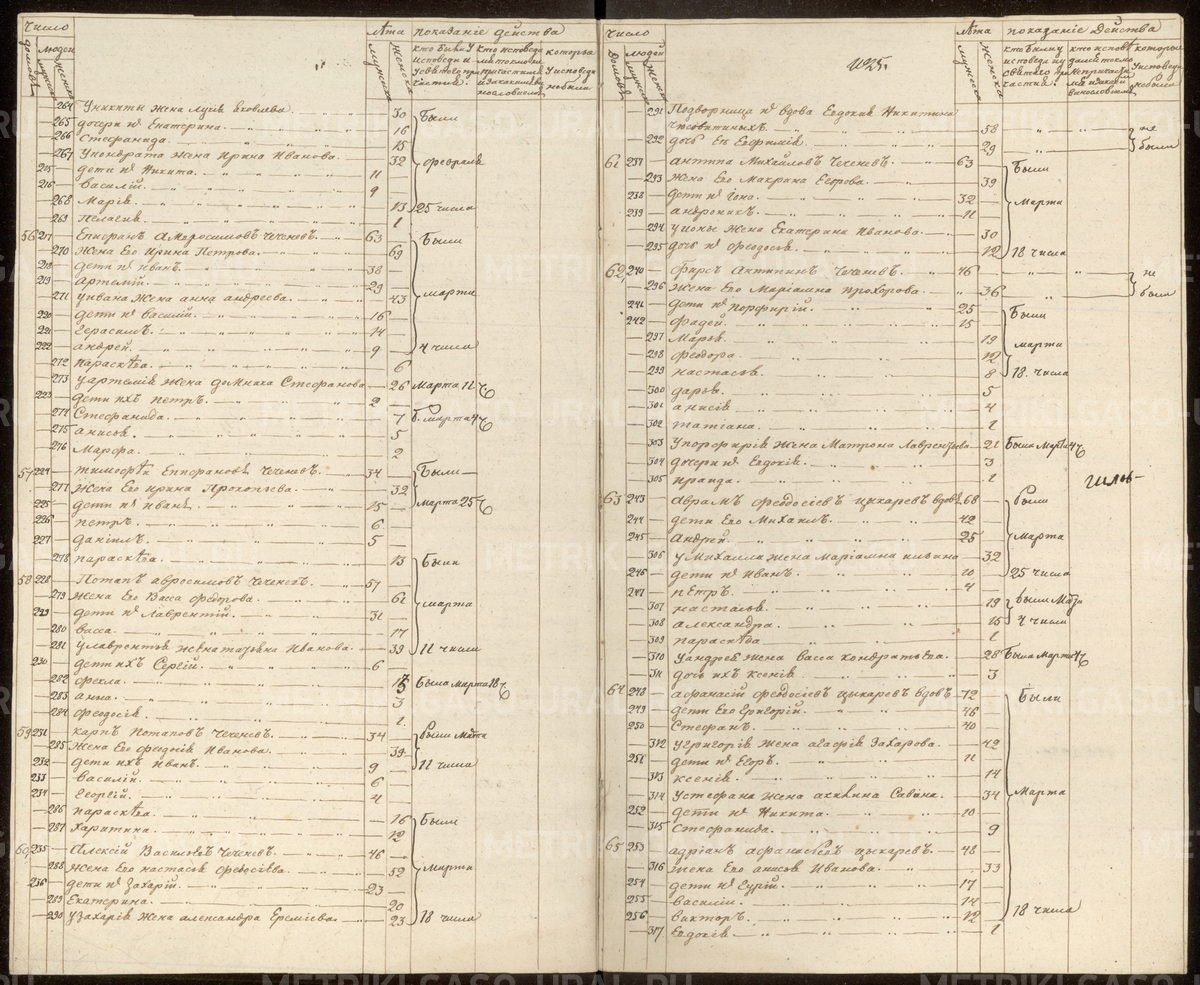 число
лѣта показанiе действа
домовъ
людей
мужеска
женска
мужеска
женска
264 Уникиты жена Лукiя Яковлева 30 Были
265 дочери их Екатерина 16
266 Стефанида 15
267 Укондрата жена Ирина Иванова 32 февраля
215 дети их Никита 11
216 Василiй 9
268 Марiя 13 25 числа
269 Пелагия 1
56 217 Епифанъ Амвросимовъ Чеченевъ 63 Были
270 жена Его Ирина Петрова 69
218 дети их Иванъ 38
219 Артемiй 29
271 Уивана жена Анна Андреева 43 марта
220 дети их Василiй 16
221 Герасимъ 14
222 Андрей 9 4 числа
272 Параскѣва 6
273 Уартемiя жена Домника Стефанова 26 Марта 11
223 дети ихъ Петръ 2
274 Стефанида 7 б. марта 4
275 Анисья 5
276 Марфа 2
57 224 Тимофѣй Епифановъ Чеченевъ 34 Были
277 жена Его Ирина Прокопьева 32
225 дети их Иванъ 15 Марта 25
226 Петръ 6
227 Данiилъ 5
278 Параскѣва 13 Были
58 228 Потапъ Авросимовъ Чеченевъ 57
279 жена Его Васса Федорова 61 марта
229 дети их Лаврентiй 31
280 Васса 17
281 Улаврентья жена Татьяна Иванова 39 11 числа
230 дети ихъ Сергiй 6
282 Фекла 13 Была Марта 18
283 Анна 3
284 Феодосiя 1
59 231 Карпъ Потаповъ Чеченевъ 34 Были Марта
285 жена Его Иванова 39
232 дети ихъ Иванъ 9 11 числа
233 Василiй 6
234 Георгiй 4
286 Параскѣва 16 Были
287 Харитина 12
60 235 Алексiй Васильевъ Чеченевъ 46
288 жена Его Настасья Федосѣева 52 Марта
236 дети их Захарiй 23
289 Екатерина 20
290 Узахарiя жена Александра Еремiева 23 18 числа
число
1125.
лѣта показанiе Действа
домовъ
людей
мужеска
женска
мужеска
женска
291 Подворница их вдова Евдокiя Никитина
58 не
292 дочь Ея Евфимiя 29 были
61 237 Антипа Михайловъ Чеченевъ 63 Были
293 жена Его Макрина Егорова 39
238 дети их Iона 32 Марта
239 Андроникъ 11
294 Уионы жена Екатерина Иванова 30
295 дочь их Феодосья 12 18 числа
62 240 Фирсъ Антипинъ Чеченевъ 46 не
296 жена Его Марiамна Прохорова 36 были
241 дети их Порфирiй 25 Были
242 Фадей 15
297 Марья 19 марта
298 Феодора 12
299 Настасья 8 18. числа
300 Дарья 5
301 Анисiя 4
302 Татiана 1
303 Упорфирiя жена Матрона Лаврентьева 21 Была Марта 4
304 дочери их Евдокiя 3
305 Ираида 1
63 243 Аврамъ Феодосiевъ Цыкаревъ вдовъ 68 Были
244 дети Его Михаилъ 42
245 Андрей 25 Марта
306 Умихаила жена Марiамна Ильина 32
246 дети их Иванъ 10 25 числа
247 Петръ 4
307 Настасья 19 были Марта
308 Александра 15 4 числа
309 Параскѣва 1
310 Уандрея жена Васса Кондратьева 28 Была Марта 4
311 дочь ихъ Ксенiя 3
64 248 Афанасiй Феодосiевъ Цыкаревъ вдовъ 72 Были
249 дети Его Григорiй 46
250 Стефанъ 40
312 Угригорiя жена Агафiя Захарова 42
251 дети их Егоръ 11
313 Ксенiя 14
314 Устефана жена Акилина Савина 34 Марта
252 дети их Никита 10
315 Стефанида 9
65 253 Адрiанъ Афанасьевъ Цыкаревъ 48
316 жена Его Анисья Иванова 33
254 дети их Гурiй 17
255 Василiй 14
256 Викторъ 12 18 числа
317 Евдокiя 1